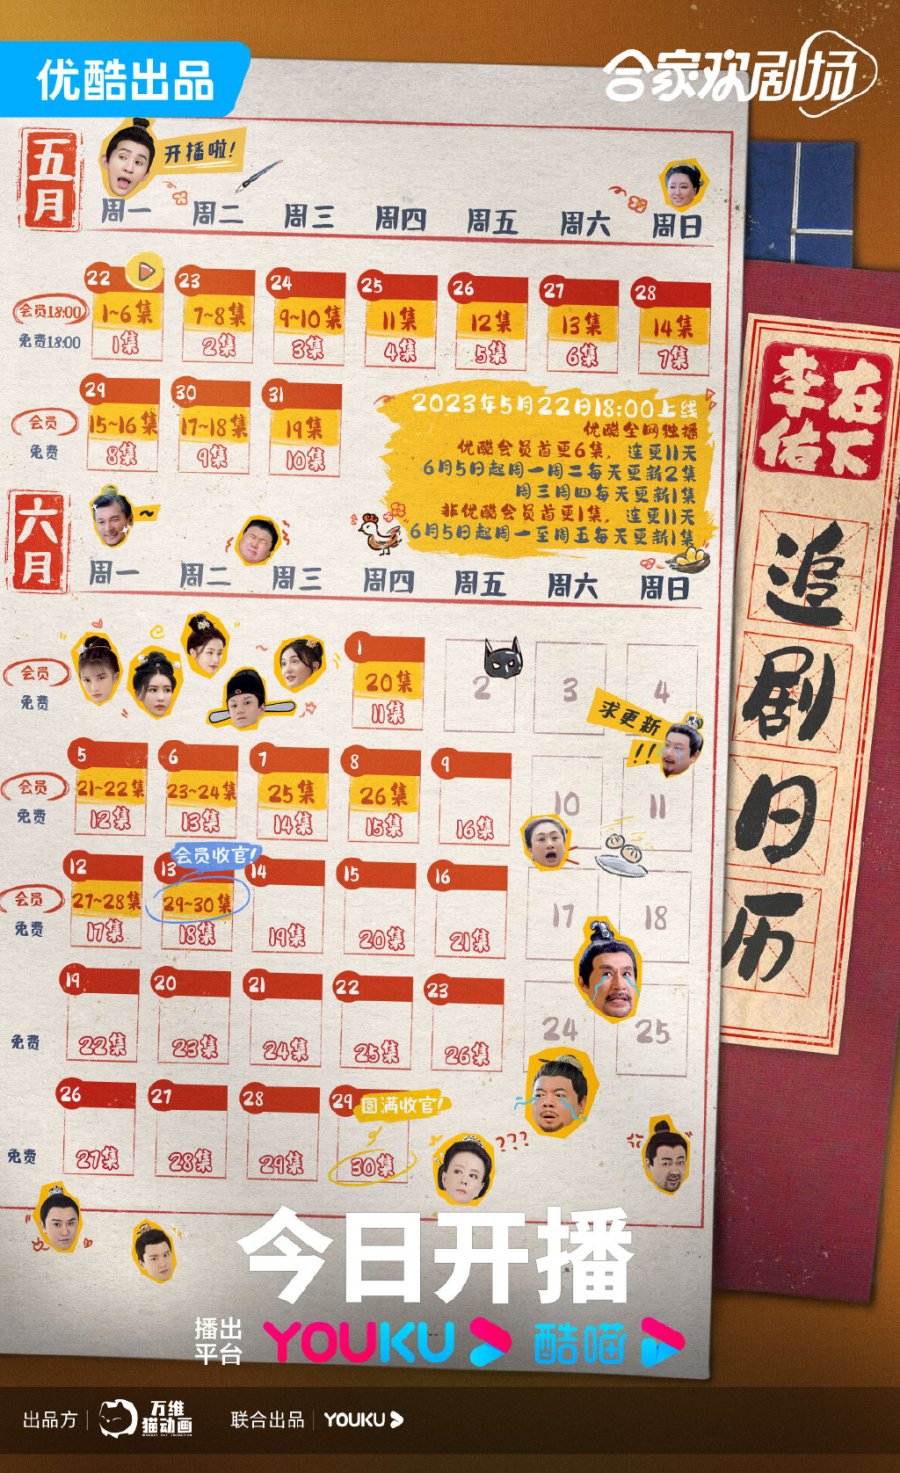 优酷出品
合家欢剧场
五月
开播啦!
周一 周二 周三 周四 周五 周六 周日
22 23 24 25 26 27 28
会员18:00 1~6集 7~8集 9~10集 11集 12集 13集 14集
免费18:00 1集 2集 3集 4集 5集 6集 7集
29 30 31
会员 15~16集 17~18集 19集
免费 8集 9集 10集
2023年5月22日18:00上线
优酷全网独播
优酷会员首更6集，连更11天
6月5日起周一周二每天更新2集
周三周四每天更新1集
非优酷会员首更1集，连更11天
6月5日起周一至周五每天更新1集
六月
~
周一 周二 周三 周四 周五 周六 周日
1 2 3 4
会员 20集
免费 11集
求更新
!!
5 6 7 8 9 10 11
会员 21~22集 23~24集 25集 26集
免费 12集 13集 14集 15集 16集
会员收官!
12 13 14 15 16 17 18
会员 27~28集 29~30集
免费 17集 18集 19集 20集 21集
19 20 21 22 23 24 25
免费 22集 23集 24集 25集 26集
26 27 28 29 圆满收官!
免费 27集 28集 29集 30集
???
在下李佑
追剧日历
今日开播
播出平台 YOUKU 酷喵
出品方 万维猫动画 联合出品 YOUKU